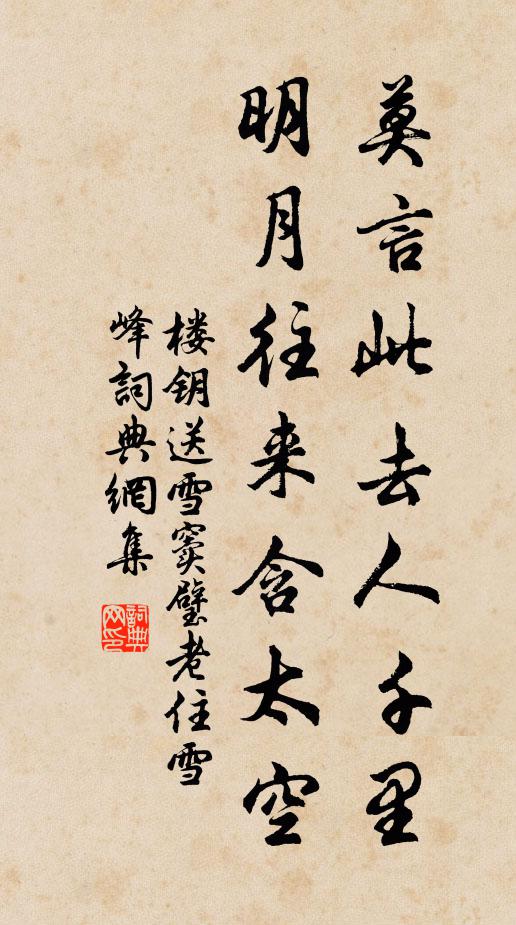 莫言此去人千里
明月往来含太空
楼钥送雪窦璧老住雪
峰詞典網集
詞典
网印